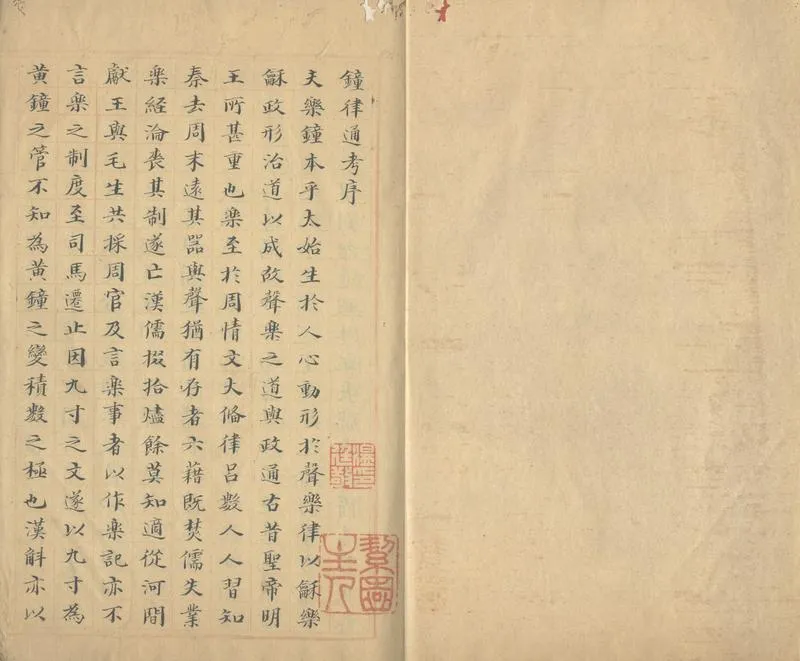 鐘律通考序
夫樂鐘本乎太始生於人心動形於聲樂律以龢樂
龢政形治道以成故聲樂之道與政通古昔聖帝明
王所甚重也樂至於周情文大備律呂數人人習知
秦去周末遠其器與聲猶有存者六藉既焚儒失業
樂經淪喪其制遂亡漢儒掇拾燼餘莫知適從河間
獻王與毛生共採周官及言樂事者以作樂記亦不
言樂之制度至司馬遷止因九寸之文遂以九寸為
黃鐘之管不知為黃鐘之變積數之極也漢斛亦以